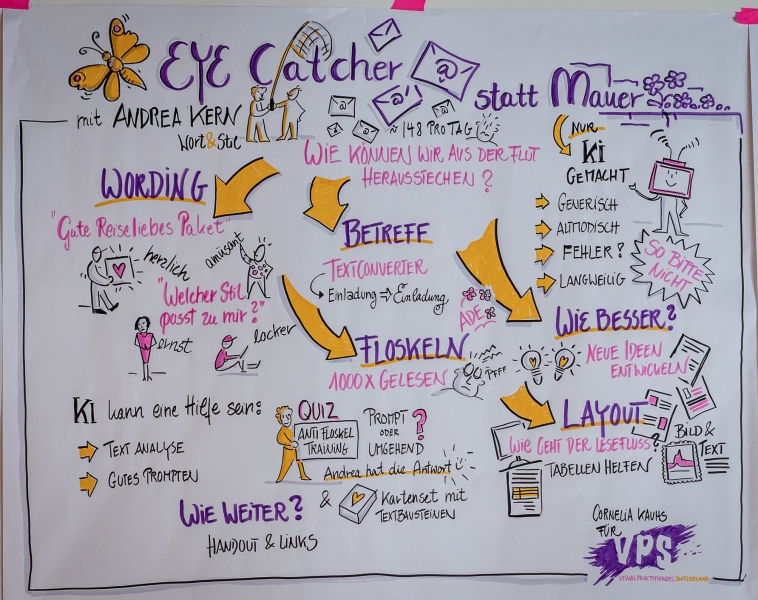 EYE Catcher statt Mauer
mit ANDREA KERN
Wort&Stil
≈ 148 PRO TAG
WIE KÖNNEN WIR AUS DER FLUT
HERAUSSTECHEN?
NUR
KI
GEMACHT
GENERISCH
ALTMODISCH
FEHLER?
LANGWEILIG
SO BITTE
NICHT
WORDING
"Gute Reiseliebes Paket"
herzlich
amüsant
"Welcher Stil
passt zu mir?"
ernst
locker
BETREFF
TEXTCONVERTER
Einladung ⇒ Einladung
ADE
FLOSKELN
1000 X GELESEN
PFFF
WIE BESSER?
NEUE IDEEN
ENTWICKELN
LAYOUT
WIE GEHT DER LESEFLUSS?
TABELLEN HELFEN
BILD &
TEXT
KI kann eine Hilfe sein:
TEXT ANALYSE
GUTES PROMPTEN
QUIZ
ANTI FLOSKEL
TRAINING
PROMPT
ODER
UMGEHEND
?
Andrea hat die Antwort
& Kartenset mit
TEXTBAUSTEINEN
WIE WEITER?
HANDOUT & LINKS
CORNELIA KAUHS
FÜR
VPS
VISUAL PRACTITIONERS SWITZERLAND